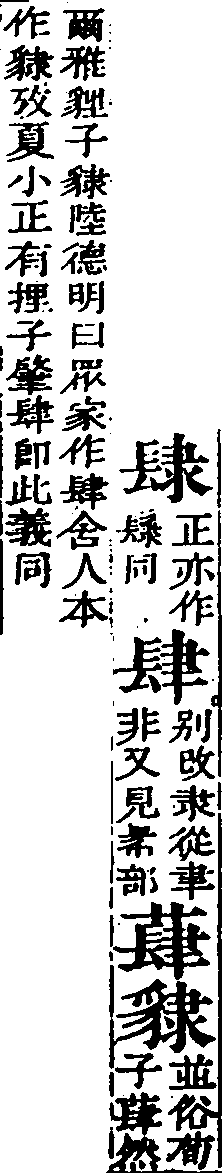 肆
正亦作
同
肆
别改隶從聿
非又見部
蕼貄
並俗荀
子蕼然
爾雅貍子貄陸德明曰眾家作肆舍人本
作貄攷夏小正有狸子肇肆即此義同